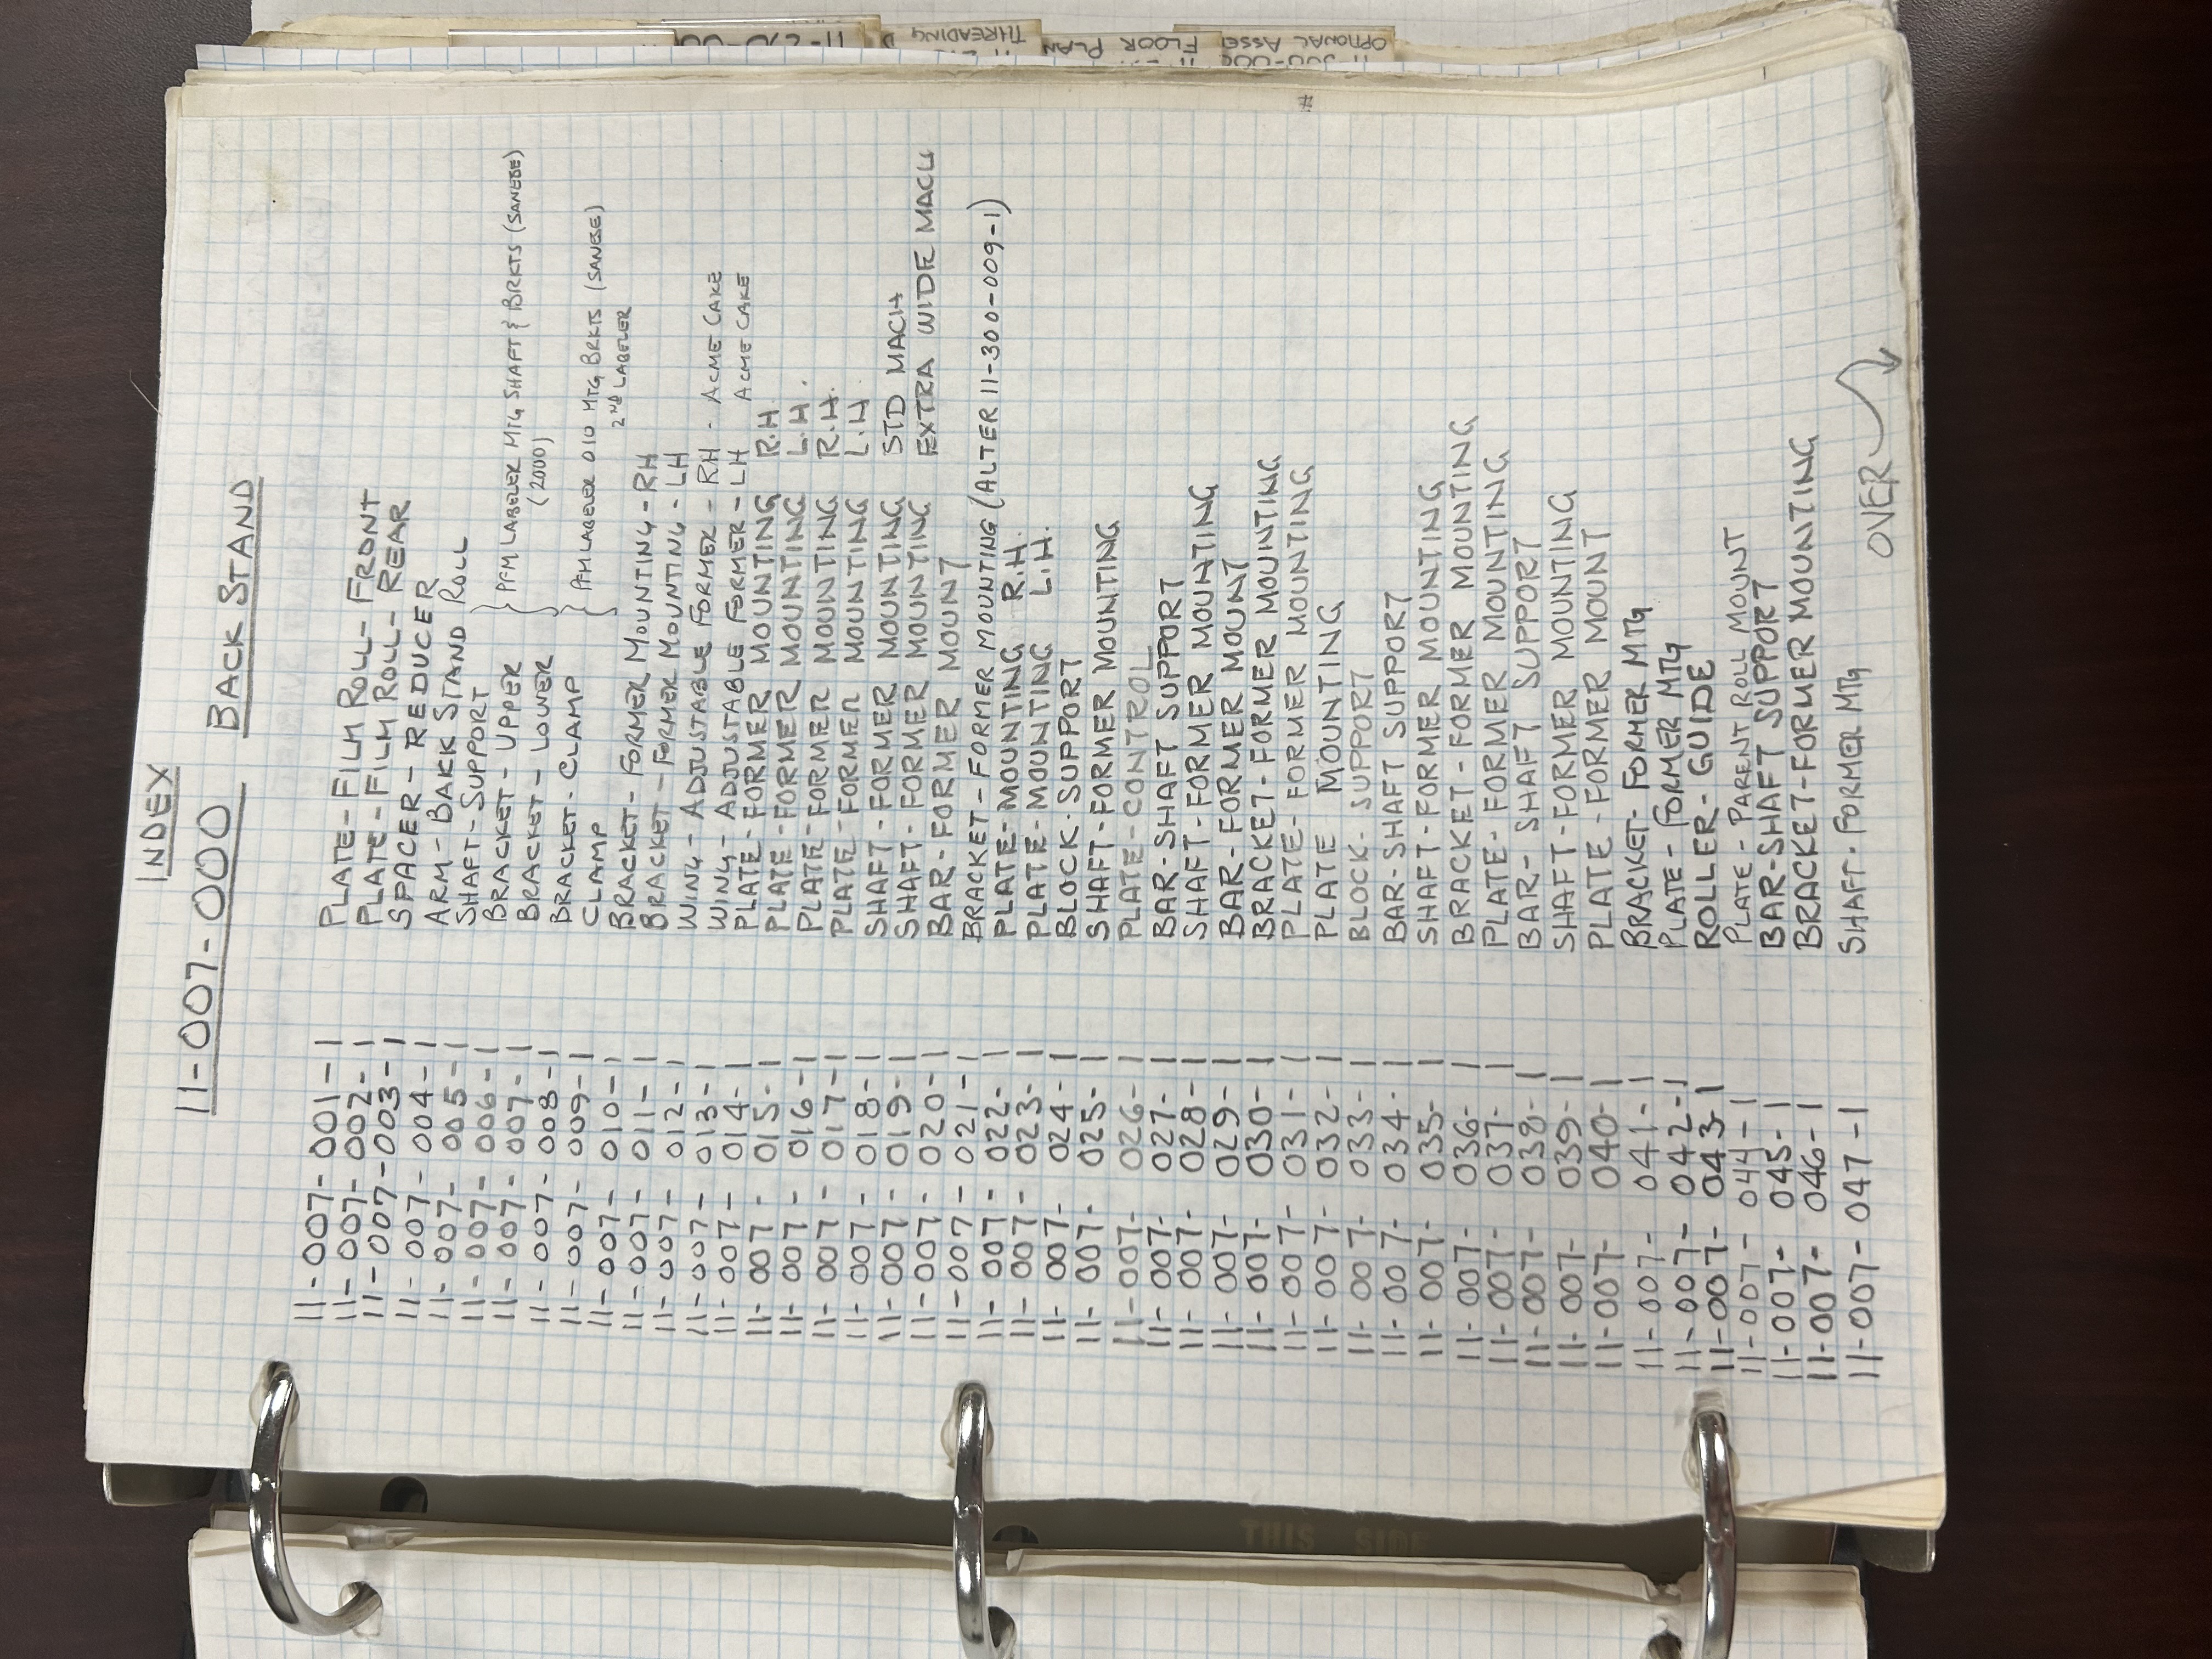 INDEX
11-007-000 BACK STAND
11-007-001-1 PLATE-FILM ROLL-FRONT
11-007-002-1 PLATE-FILM ROLL-REAR
11-007-003-1 SPACER-REDUCER
11-007-004-1 ARM-BAKK STAND ROLL
11-007-005-1 SHAFT-SUPPORT
11-007-006-1 BRACKET-UPPER } PFM LABELER MTG SHAFT & BRKTS (SANESE)
11-007-007-1 BRACKET-LOWER (2000)
11-007-008-1 BRACKET-CLAMP } PFM LABELER 010 MTG BRKTS (SANESE)
11-007-009-1 CLAMP 2ND LABELER
11-007-010-1 BRACKET-FORMER MOUNTING-RH
11-007-011-1 BRACKET-FORMER MOUNTING-LH
11-007-012-1 WING-ADJUSTABLE FORMER-RH-ACME CAKE
11-007-013-1 WING-ADJUSTABLE FORMER-LH ACME CAKE
11-007-014-1 PLATE-FORMER MOUNTING R.H.
11-007-015-1 PLATE-FORMER MOUNTING L.H.
11-007-016-1 PLATE-FORMER MOUNTING R.H.
11-007-017-1 PLATE-FORMER MOUNTING L.H
11-007-018-1 SHAFT-FORMER MOUNTING STD MACH
11-007-019-1 SHAFT-FORMER MOUNTING EXTRA WIDE MACH
11-007-020-1 BAR-FORMER MOUNT
11-007-021-1 BRACKET-FORMER MOUNTING (ALTER 11-300-009-1)
11-007-022-1 PLATE-MOUNTING R.H.
11-007-023-1 PLATE-MOUNTING L.H.
11-007-024-1 BLOCK-SUPPORT
11-007-025-1 SHAFT-FORMER MOUNTING
11-007-026-1 PLATE-CONTROL
11-007-027-1 BAR-SHAFT SUPPORT
11-007-028-1 SHAFT-FORMER MOUNTING
11-007-029-1 BAR-FORMER MOUNT
11-007-030-1 BRACKET-FORMER MOUNTING
11-007-031-1 PLATE-FORMER MOUNTING
11-007-032-1 PLATE MOUNTING
11-007-033-1 BLOCK-SUPPORT
11-007-034-1 BAR-SHAFT SUPPORT
11-007-035-1 SHAFT-FORMER MOUNTING
11-007-036-1 BRACKET-FORMER MOUNTING
11-007-037-1 PLATE-FORMER MOUNTING
11-007-038-1 BAR-SHAFT SUPPORT
11-007-039-1 SHAFT-FORMER MOUNTING
11-007-040-1 PLATE-FORMER MOUNT
11-007-041-1 BRACKET-FORMER MTG
11-007-042-1 PLATE-FORMER MTG
11-007-043-1 ROLLER-GUIDE
11-007-044-1 PLATE-PARENT ROLL MOUNT
11-007-045-1 BAR-SHAFT SUPPORT
11-007-046-1 BRACKET-FORMER MOUNTING
11-007-047-1 SHAFT-FORMER MTG
OVER
THIS SIDE
THREADING
FLOOR PLAN
OPTIONAL